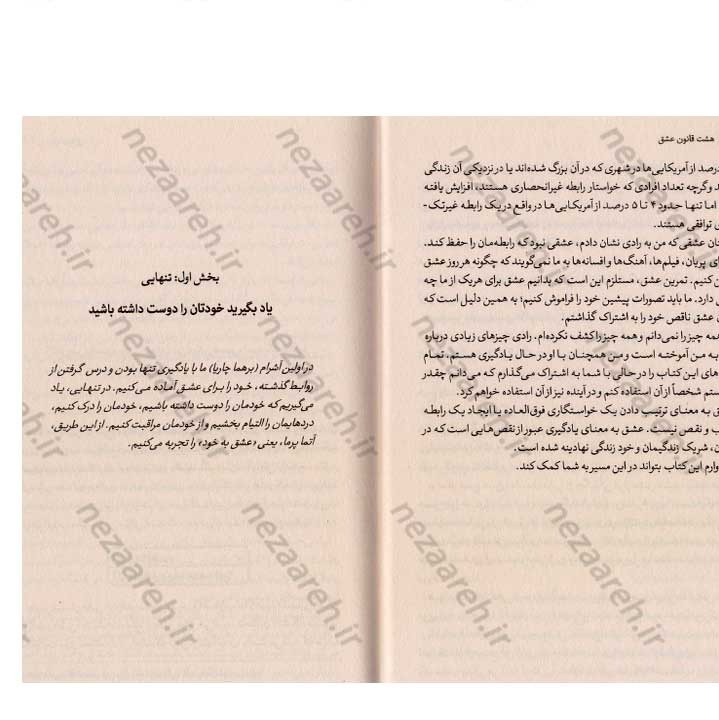 هشت قانون عشق
درصد از آمریکایی‌ها در شهری که در آن بزرگ شده‌اند یا در نزدیکی آن زندگی
د وگرچه تعداد افرادی که خواستار رابطه غیرانحصاری هستند، افزایش یافته
اما تنها حدود ۴ تا ۵ درصد از آمریکایی‌ها در واقع در یک رابطه غیرتک-
ی توافقی هستند.
عشقی که من به رادی نشان دادم، عشقی نبود که رابطه‌مان را حفظ کند.
پریان، فیلم‌ها، آهنگ‌ها و افسانه‌ها به ما نمی‌گویند که چگونه هر روز عشق
کنیم. تمرین عشق، مستلزم این است که بدانیم عشق برای هریک از ما چه
دارد. ما باید تصورات پیشین خود را فراموش کنیم؛ به همین دلیل است که
عشق ناقص خود را به اشتراک گذاشتم.
همه چیز را نمی‌دانم و همه چیز را کشف نکرده‌ام. رادی چیزهای زیادی درباره
به من آموخته است و من همچنان با او در حال یادگیری هستم، تمام
های این کتاب را در حالی با شما به اشتراک می‌گذارم که می‌دانم چقدر
ستم شخصاً از آن استفاده کنم و در آینده نیز از آن استفاده خواهم کرد.
به معنای ترتیب دادن یک خواستگاری فوق‌العاده یا ایجاد یک رابطه
و نقص نیست. عشق به معنای یادگیری عبور از نقص‌هایی است که در
ن، شریک زندگیمان و خود زندگی نهادینه شده است.
وارم این کتاب بتواند در این مسیر به شما کمک کند.
بخش اول: تنهایی
یاد بگیرید خودتان را دوست داشته باشید
در اولین آشرام (برهما چاریا) ما با یادگیری تنها بودن و درس گرفتن از
روابط گذشته، خود را برای عشق آماده می‌کنیم. در تنهایی، یاد
می‌گیریم که خودمان را دوست داشته باشیم، خودمان را درک کنیم،
دردهایمان را التیام بخشیم و از خودمان مراقبت کنیم. از این طریق،
آتما پرما، یعنی «عشق به خود» را تجربه می‌کنیم.
nezaareh.ir
nezaareh.ir
nezaareh.ir
nezaareh.ir
nezaareh.ir
nezaareh.ir
nezaareh.ir
nezaareh.ir